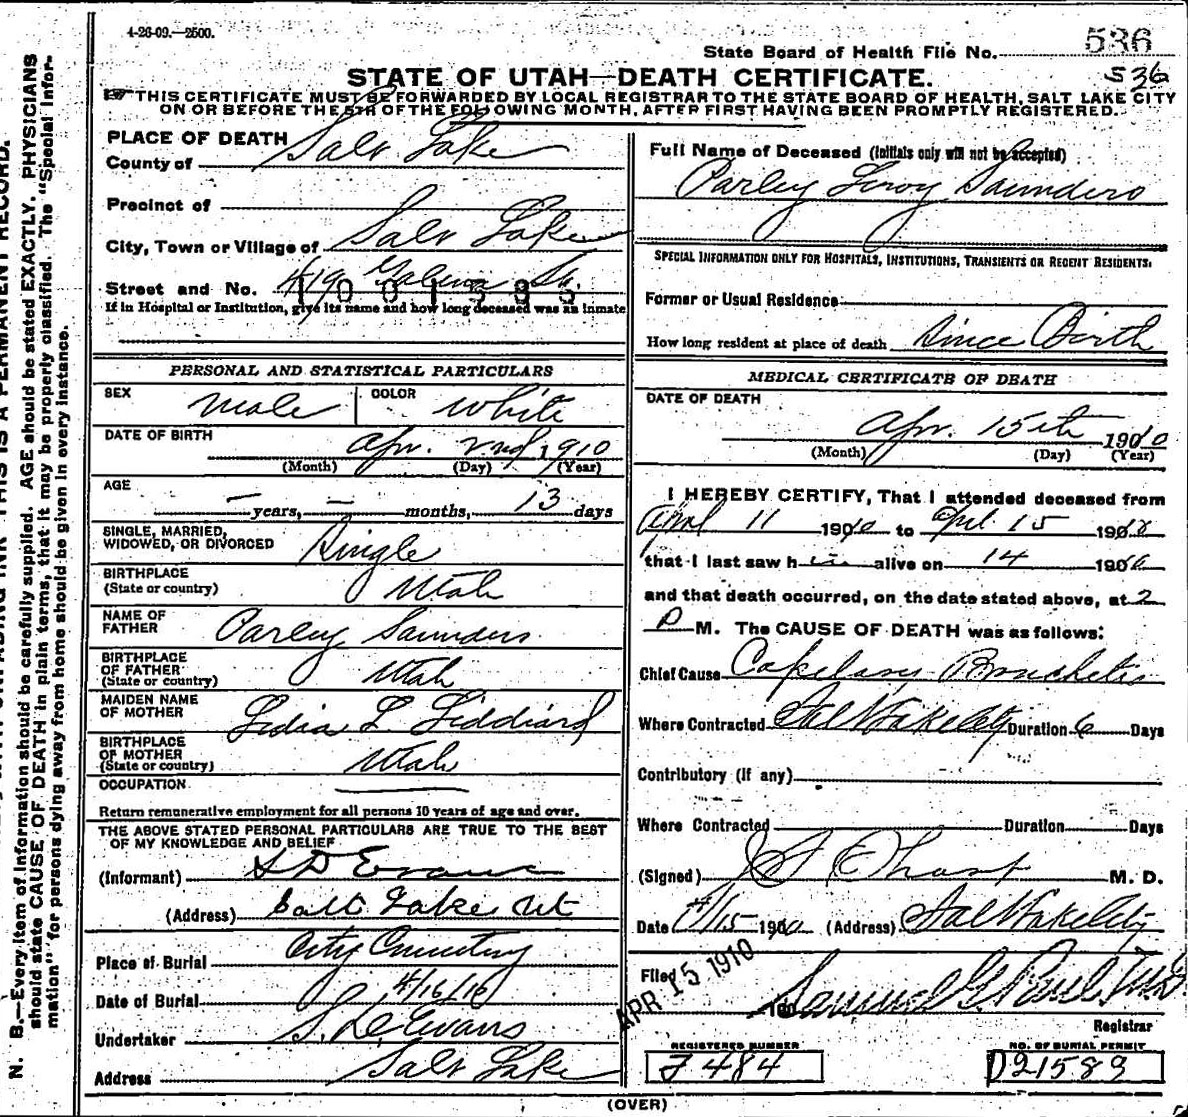 4-26-09.—2500.
State Board of Health File No. 536
STATE OF UTAH—DEATH CERTIFICATE.
536
THIS CERTIFICATE MUST BE FORWARDED BY LOCAL REGISTRAR TO THE STATE BOARD OF HEALTH, SALT LAKE CITY
ON OR BEFORE THE 5TH OF THE FOLLOWING MONTH, AFTER FIRST HAVING BEEN PROMPTLY REGISTERED.
PLACE OF DEATH
County of Salt Lake
Precinct of
City, Town or Village of Salt Lake
Street and No. 419 St.
If in Hospital or Institution, give its name and how long deceased was an inmate
PERSONAL AND STATISTICAL PARTICULARS
SEX Male COLOR White
DATE OF BIRTH
Apr. 2nd 1910
(Month) (Day) (Year)
AGE
— years, — months, 13 days
SINGLE, MARRIED,
WIDOWED, OR DIVORCED Single
BIRTHPLACE
(State or country) Utah
NAME OF
FATHER Parley Saunders
BIRTHPLACE
OF FATHER
(State or country) Utah
MAIDEN NAME
OF MOTHER Lidia L. Liddiard
BIRTHPLACE
OF MOTHER
(State or country) Utah
OCCUPATION
Return remunerative employment for all persons 10 years of age and over.
THE ABOVE STATED PERSONAL PARTICULARS ARE TRUE TO THE BEST
OF MY KNOWLEDGE AND BELIEF
(Informant) S D Evans
(Address) Salt Lake Ut
Place of Burial City Cemetery
Date of Burial 4/16/10
Undertaker S. D. Evans
Address Salt Lake
Full Name of Deceased (Initials only will not be accepted)
Parley Leroy Saunders
SPECIAL INFORMATION ONLY FOR HOSPITALS, INSTITUTIONS, TRANSIENTS OR RECENT RESIDENTS.
Former or Usual Residence
How long resident at place of death Since Birth
MEDICAL CERTIFICATE OF DEATH
DATE OF DEATH
Apr. 15th 1910
(Month) (Day) (Year)
I HEREBY CERTIFY, That I attended deceased from
April 11 1910 to Apl. 15 1910
that I last saw him alive on 14 1910
and that death occurred, on the date stated above, at 2
P M. The CAUSE OF DEATH was as follows:
Chief Cause Capelary Bronchetis
Where Contracted Salt Lake City Duration 6 Days
Contributory (if any)
Where Contracted Duration Days
(Signed) M. D.
Date 4/15 1910 (Address) Salt Lake City
Filed APR 15 1910 190
Samuel G. Paul
Registrar
REGISTERED NUMBER
J 484
NO. OF BURIAL PERMIT
D21589
(OVER)
N. B.—Every item of information should be carefully supplied. AGE should be stated EXACTLY. PHYSICIANS
should state CAUSE OF DEATH in plain terms, that it may be properly classified. The "Special Infor-
mation" for persons dying away from home should be given in every instance.